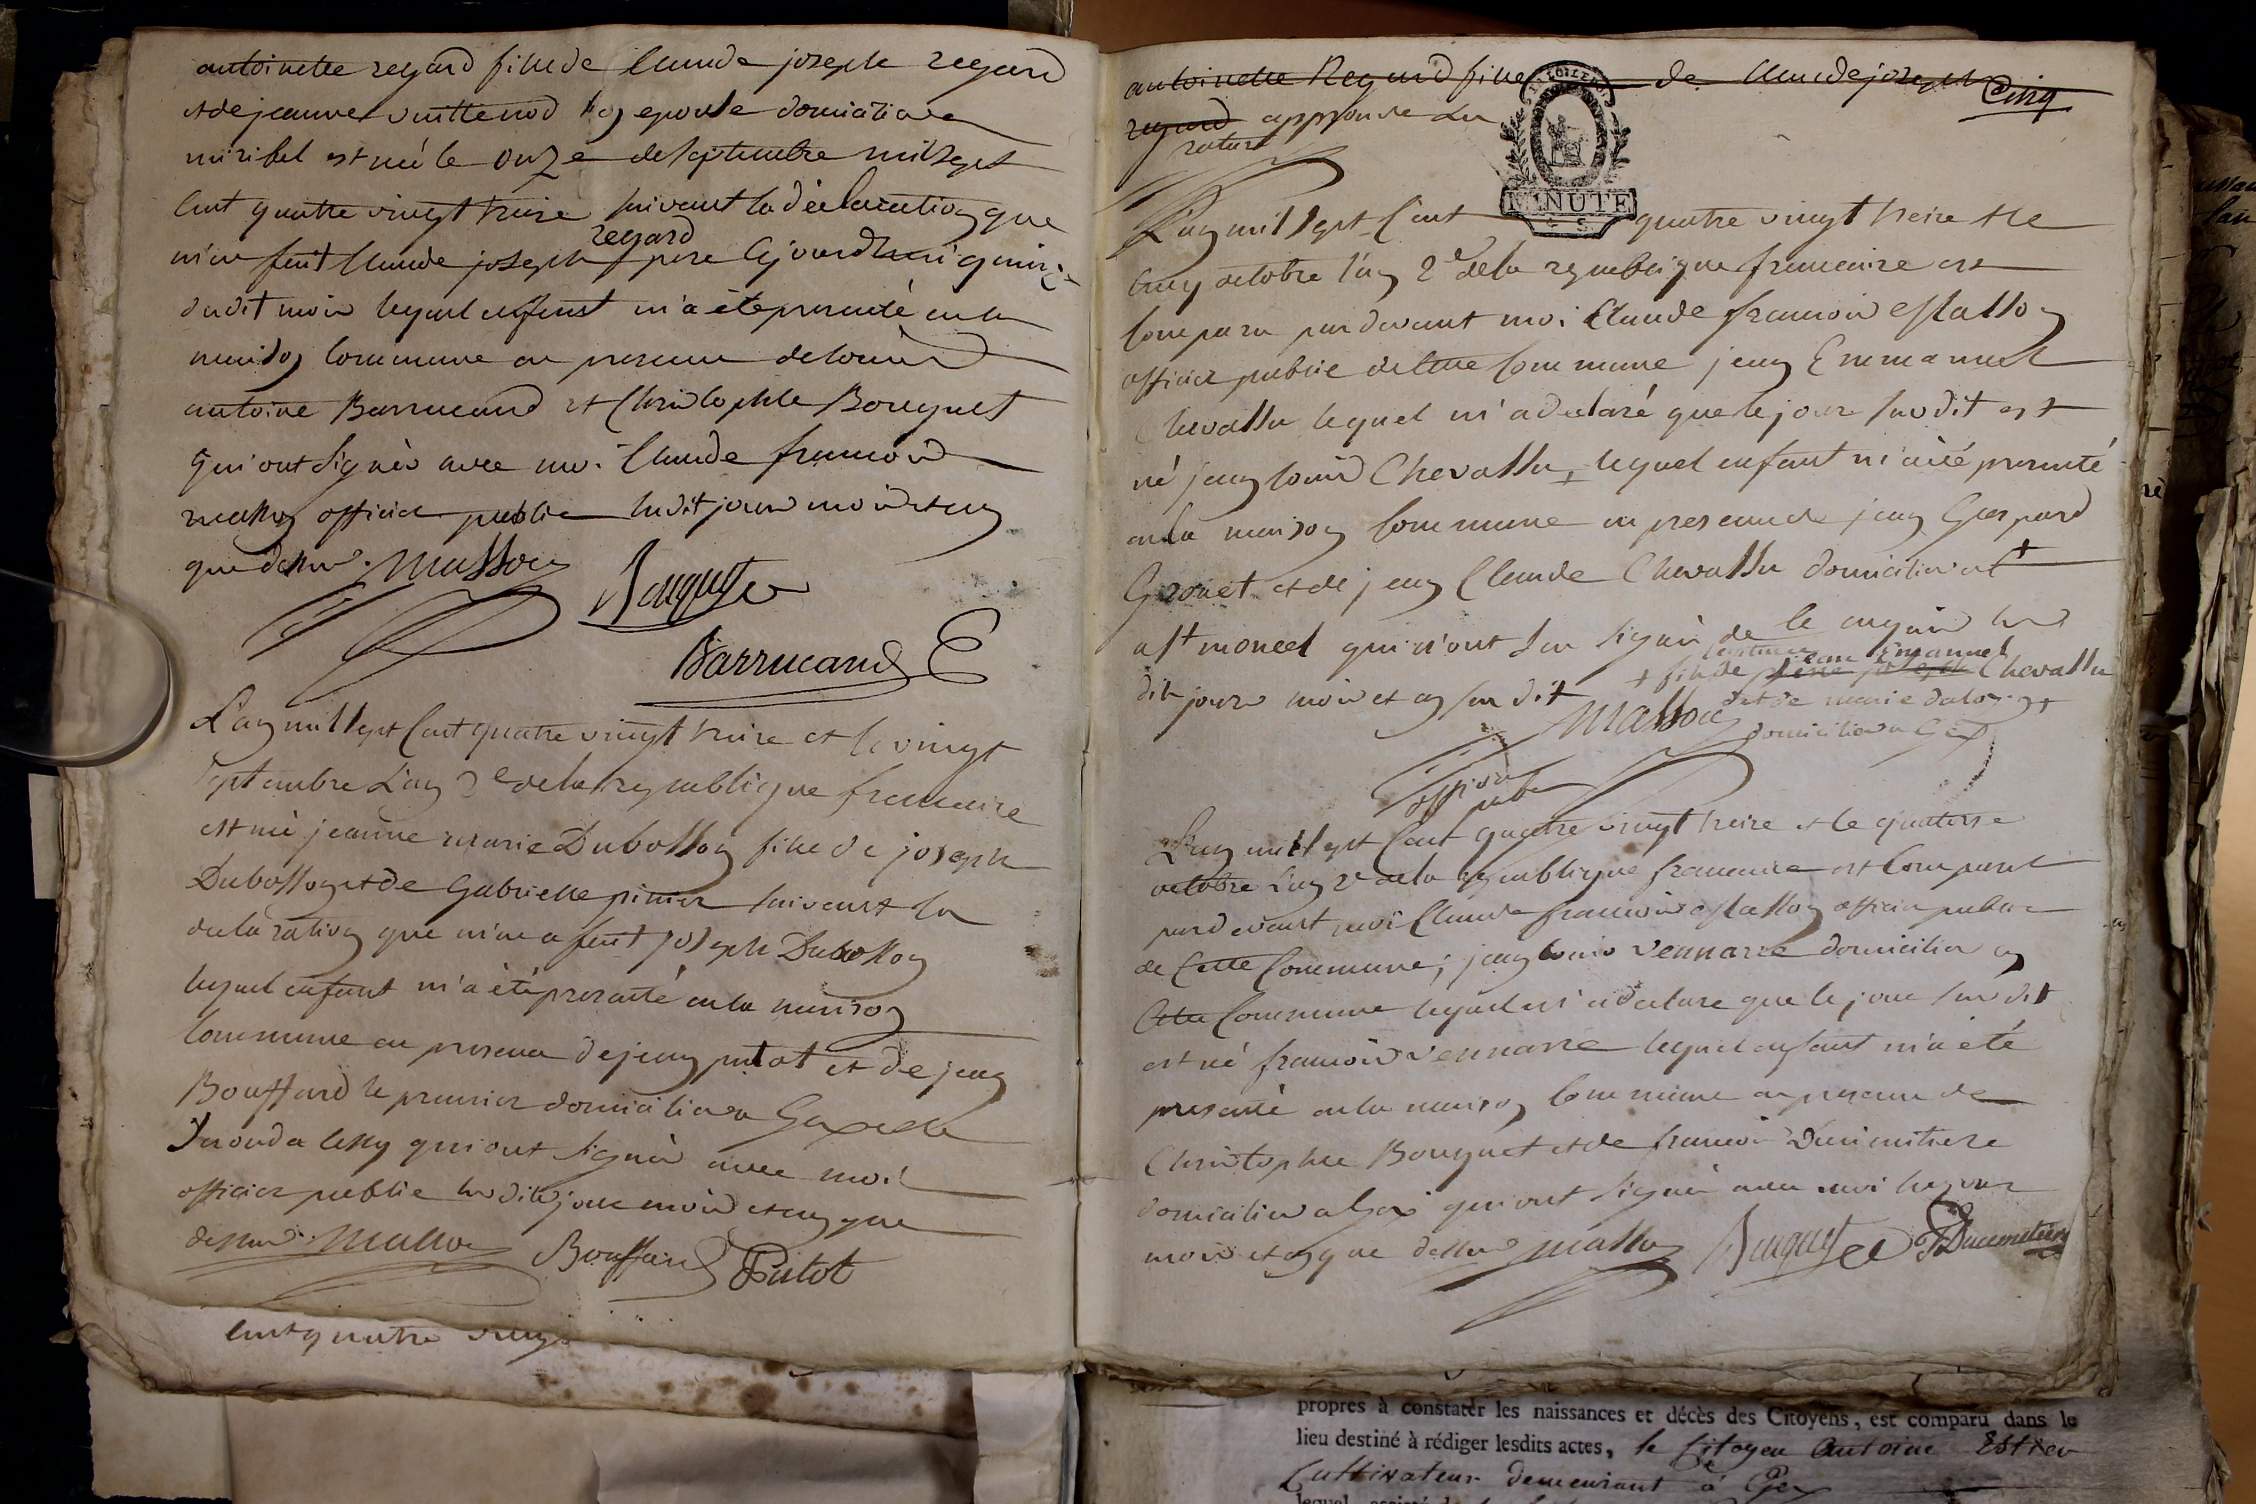 antoinette regard fille de Claude joseph regard
et de jeanne vuillenod son epouse domicilies a
miribel est née le onze de septembre mil sept
Cent quatre vingt treize suivant la déclaration que
m'en fait Claude joseph regard pere Cejourdhui quinze
dudit mois lequel enfent m'a été presenté en la
maison Commune en presence de temoins
antoine Barrucand et Christophle Bouquet
qui ont signés avec moi Claude francois
masson officier public ludit jour mois et an
que dessus. Masson Bouquet
Barrucand
L'an mil sept Cent quatre vingt treize et le vingt
septembre L'an 2e de la republique francaise
est née jeanne marie Dubosson fille de joseph
Dubosson et de Gabrielle pinier suivant la
declaration que m'en a fait joseph Dubosson
lequel enfant m'a été presenté en la maison
Commune en presence de jean putot et de jean
Bouffard le premier domicilier a Gex et le
second a Cessy qui ont signés avec moi
officier public susdits jour mois et an que
dessus. Masson Bouffard Putot
Cent quatre vingt
antoinette Regard fille de Claude joseph Cinq
regard approuve la
rature
MINUTE
L'an mil sept Cent quatre vingt treize et le
Cinq octobre l'an 2e de la republique francaise est
Comparu par devant moi Claude francois Masson
officier public de cette Commune jean Emmanuel
Chevassu lequel m'a declaré que le jour susdit est
né jean louis Chevassu + lequel enfant m'a été presenté
en la maison Commune en presence de jean Gaspard
Gronet et de jean Claude Chevassu domicilies a +
a st moncel qui n'ont su signer de ce enquis sus
dits jours mois et an susdit + fils de pierre joseph jean Emanuel Chevassu
Masson et de marie dalo
domicilies a Gex
officier
public
L'an mil sept Cent quatre vingt treize et le quatorse
octobre L'an 2e de la republique francaise est Comparut
pardevant moi Claude francois Masson officier public
de Cette Commune; jean louis vennarre domicilier en
Cette Commune lequel m'a declare que le jour susdit
est né francois vennarre lequel enfant m'a été
presenté en la maison Commune en presence de
Christophle Bouquet et de francois Ducimitiere
domicilies a Gex qui ont signés avec moi les jour
mois et an que dessus Masson Bouquet F Ducimetiere
propres à constater les naissances et décès des Citoyens, est comparu dans le
lieu destiné à rédiger lesdits actes, le Citoyen Antoine Estier
Cultivateur demeurant à Gex